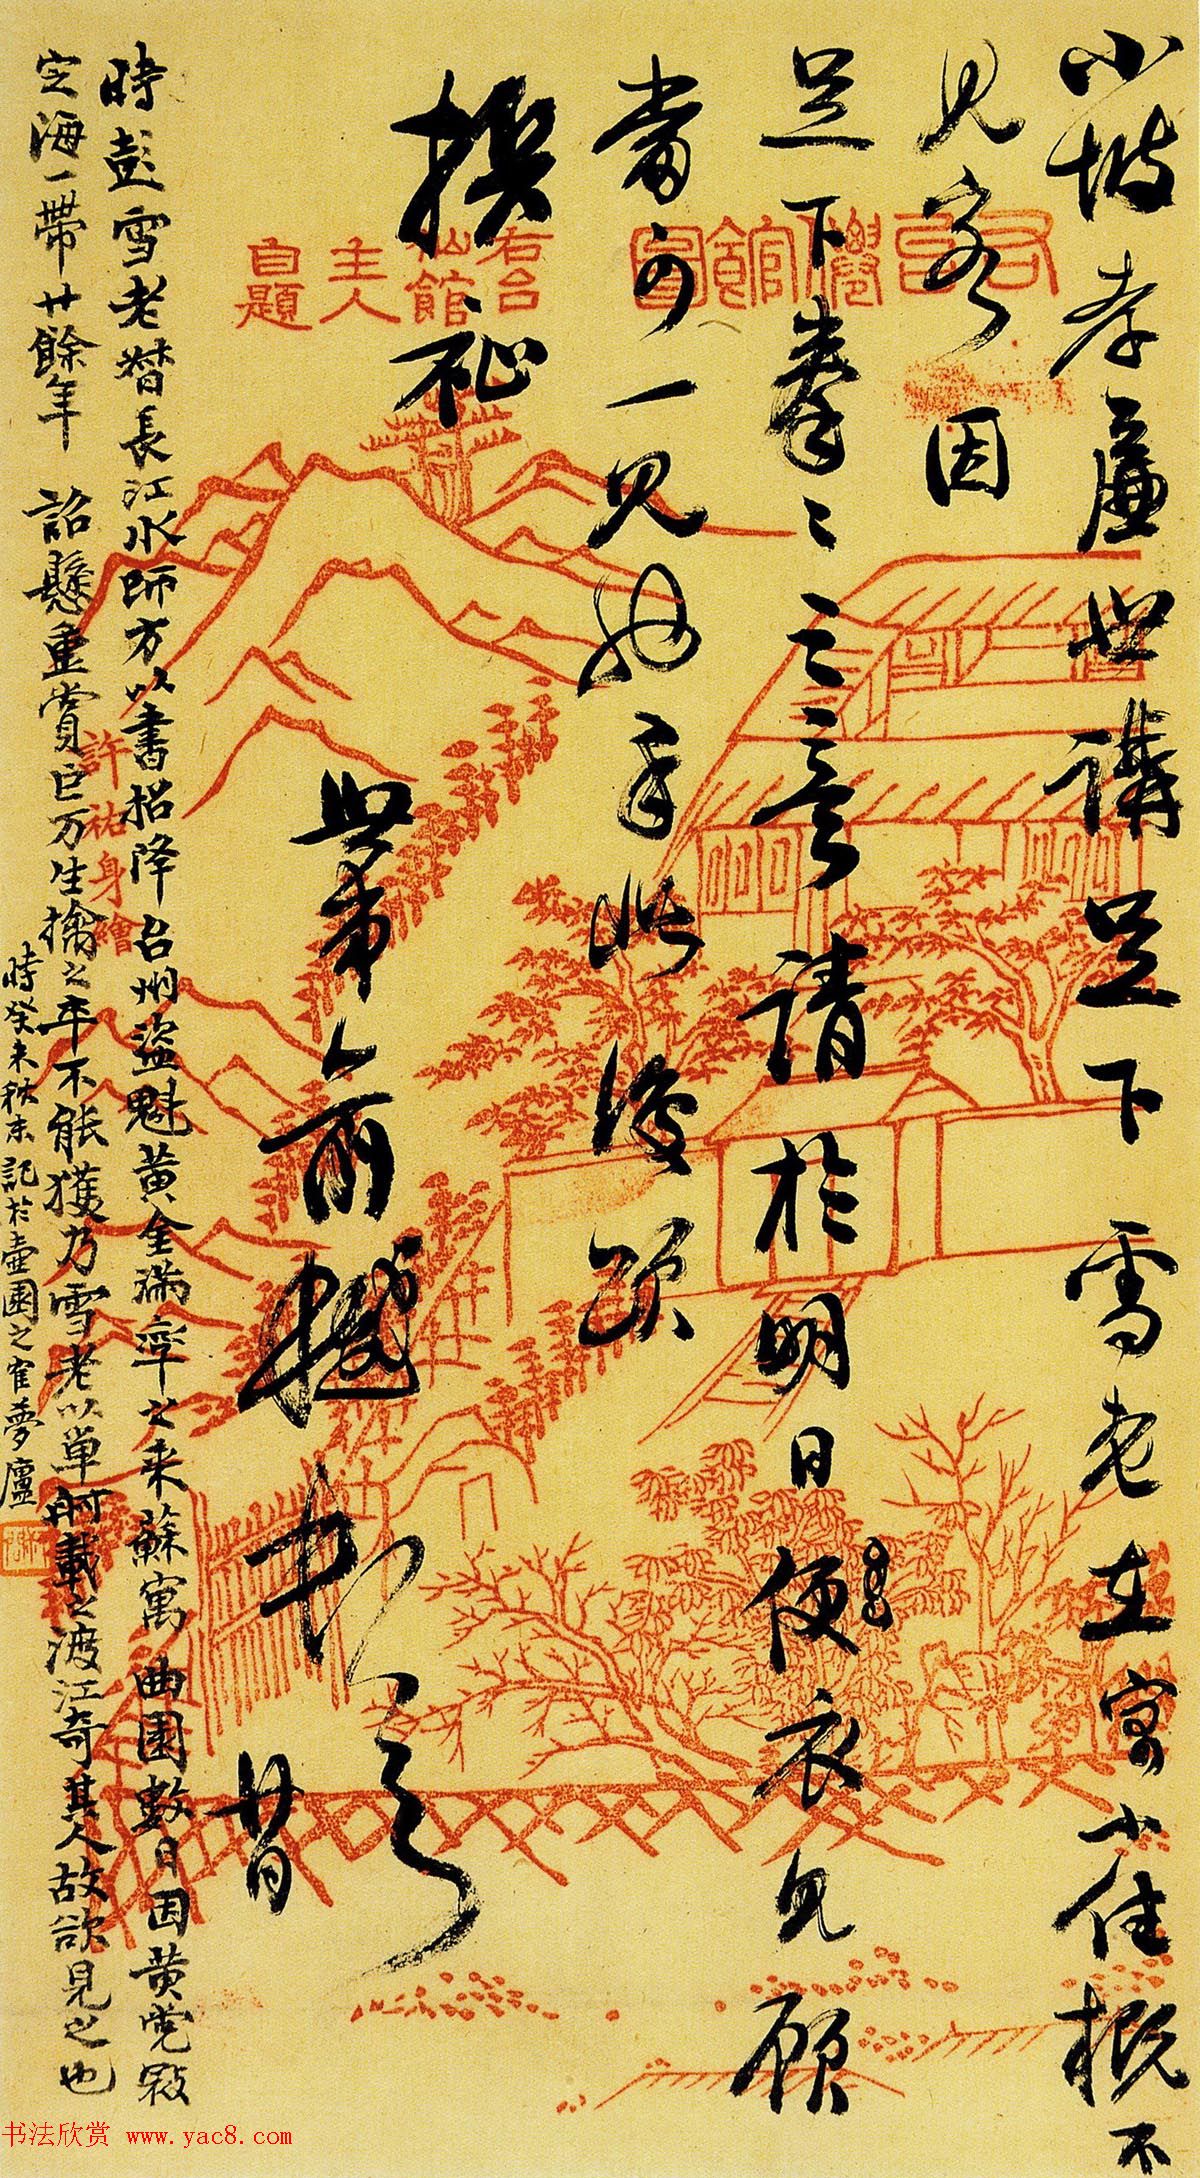 小坡孝廉世講足下雪老在寓小住概不
見客因
足下拳〻之意請於明日便衣見顧
當可一見也手此復頌
撰祉
世弟俞樾
時彭雪老督長江水師方以書招降台州盜魁黃金滿率之來蘇寓 曲園數日因黃党
定海一帶廿餘年 詔懸重賞巨万生擒之卒不能獲乃雪老以單舸載之渡江奇其人故欲見之也
時癸未秋末記於壺園之崔夢廬
右台僊館圖
右台
仙館
主人
自題
許祐身繪
书法欣赏 www.yac8.com